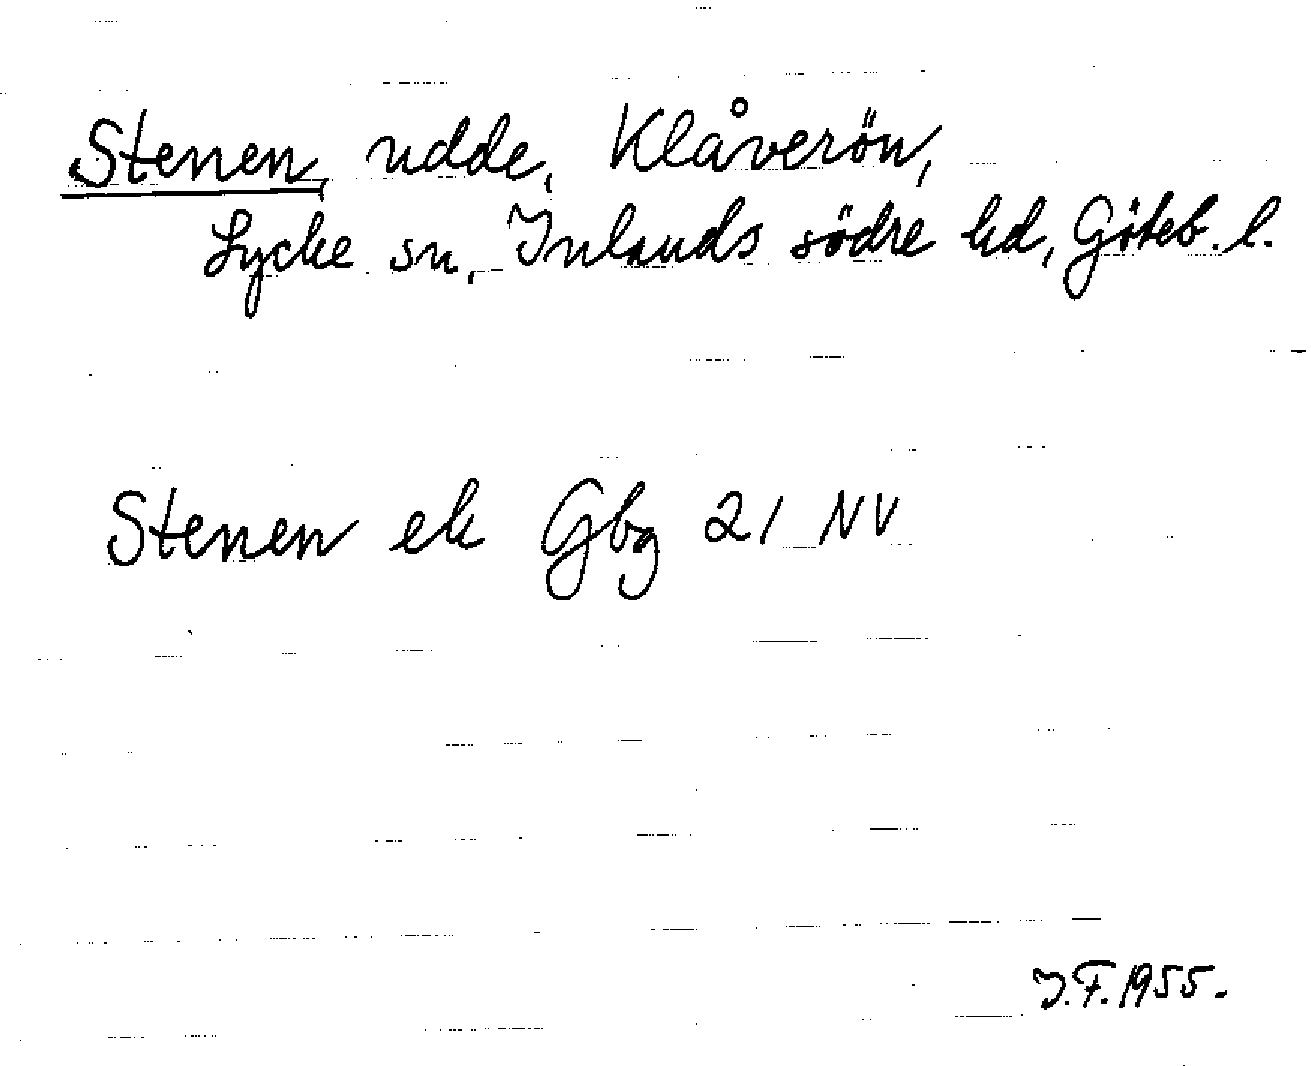 Stenen, udde, Klåverön,
Lycke sn, Inlands södre hd, Göteb. l.
Stenen ek Gbg 21 NV
I.F. 1955.